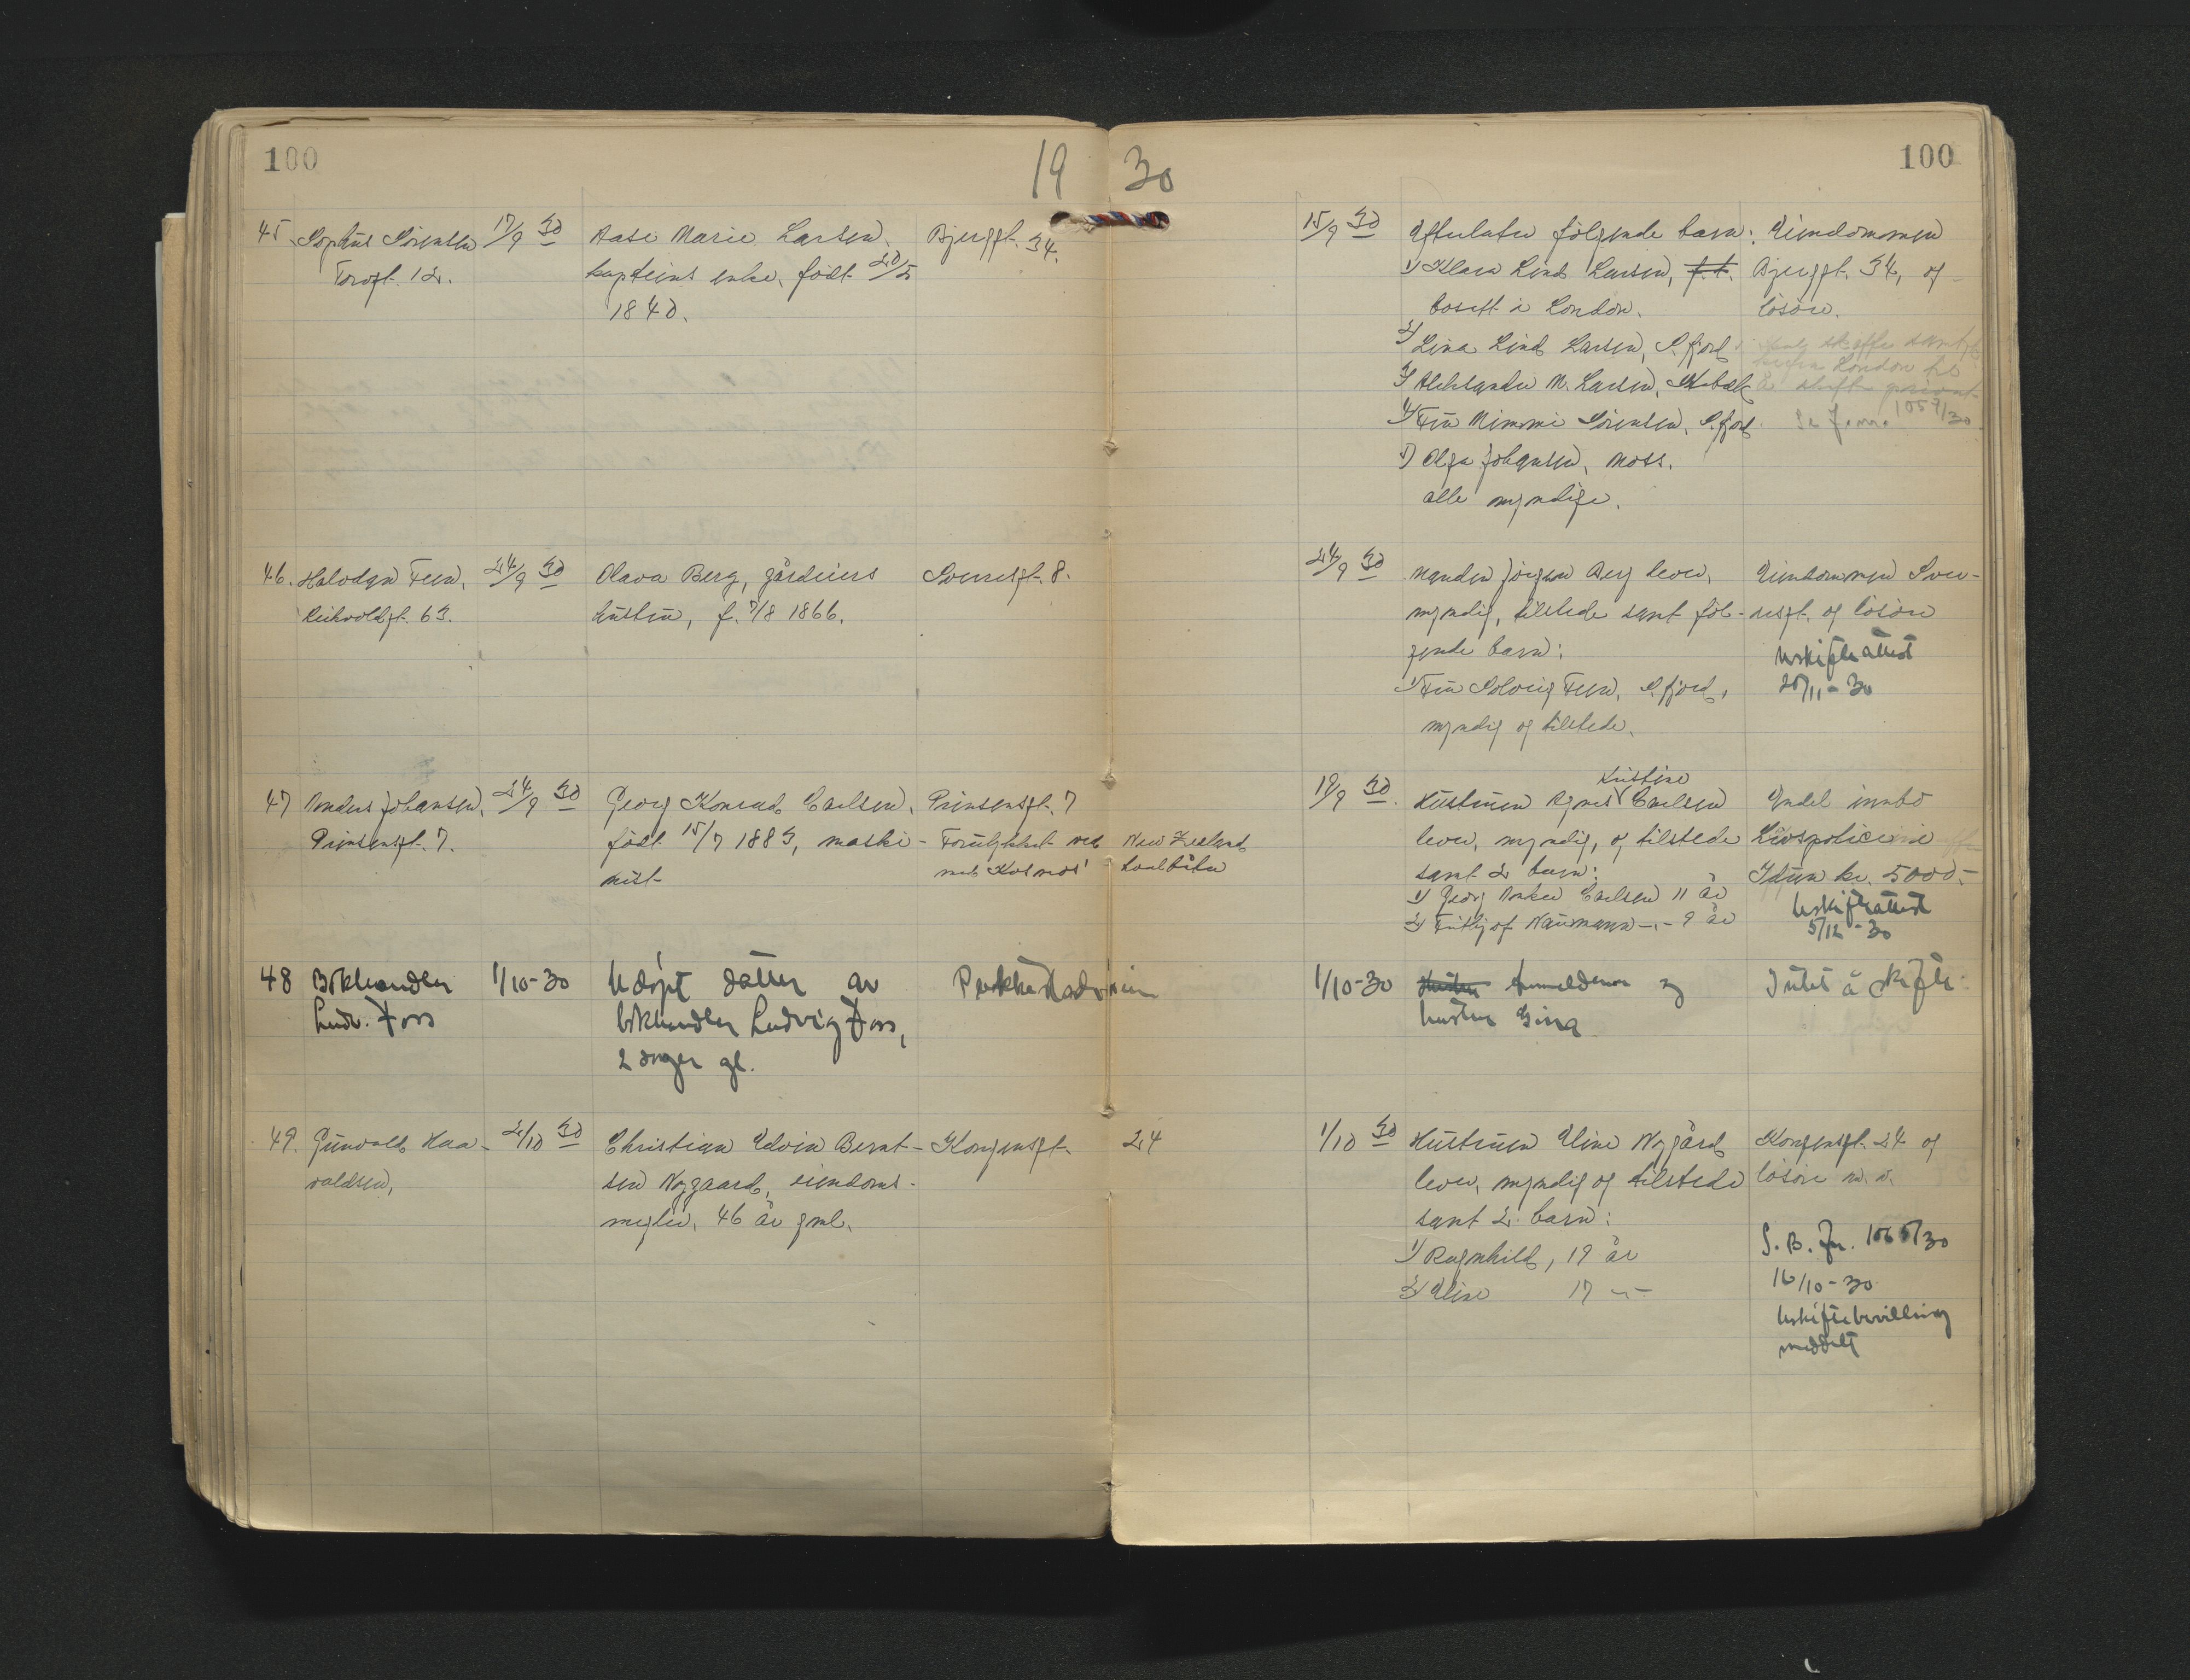 100
19 30
100
45. Sophus Sørensen 17/9 30 Aase Marie Larsen, Bjerggt. 34. 15/9 30 Efterlater følgende barn: Eiendommen
Torvgt. 12. kapteins enke, født 20/5 1) Klara Lind Larsen, f.t. Bjerggt. 34, og
1840. bosatt i London. løsøre.
2) Lina Lind Larsen, S.fjord
London
3) Aleksander M. Larsen,
å skifte privat
4) Fru Mimmi Sørensen, S.fjord. 1057/30
5) Olga Johansen, Moss.
alle myndige.
46. Halvdan Feen, 24/9 30 Olava Berg, gårdeiers Sverresgt. 8. 24/9 30 Manden Jørgen Berg lever, Eiendommen Sver-
63. hustru, f. 7/8 1866. myndig, tilstede samt føl- resgt. og løsøre
gende barn: Uskifteattest
1) Fru Solveig Feen, S.fjord, 25/11-30
myndig og tilstede.
47 Anders Johansen, 24/9 30 Georg Konrad Carlsen, Prinsensgt. 7 19/9 30. Hustruen Agnes Kristine Carlsen Endel innbo
Prinsensgt. 7. født 15/7 1883, maski- Forulykket ved New Zealand lever, myndig, og tilstede Livspolice i
nist med Kosmos' hvalbåter samt 2 barn: Idun kr. 5000.-
1) Georg Carlsen 11 år Uskifteattest
2) Fritjof Naumann -"- 9 år 5/12-30
48 Bokhandler 1/10-30 Udøpt datter av 1/10-30 Hustru Anmelderen og Intet å skifte.
Ludv. Foss bokhandler Ludvig Foss, hustru Gina
2 gl.
49. Gunvald Haa- 2/10 30 Christian Edvin Bernt- Kongensgt. 24 1/10 30 Hustruen Eline Nygård Kongensgt. 24 og
valdsen, sen Nygaard, eiendoms- lever, myndig og tilstede løsøre m.v.
megler, 46 år gml. samt 2 barn:
1) Ragnhild, 19 år S.B. Jn. 1065/30
2) Elise 17 -"- 16/10-30
Uskiftebevilling
meddelt